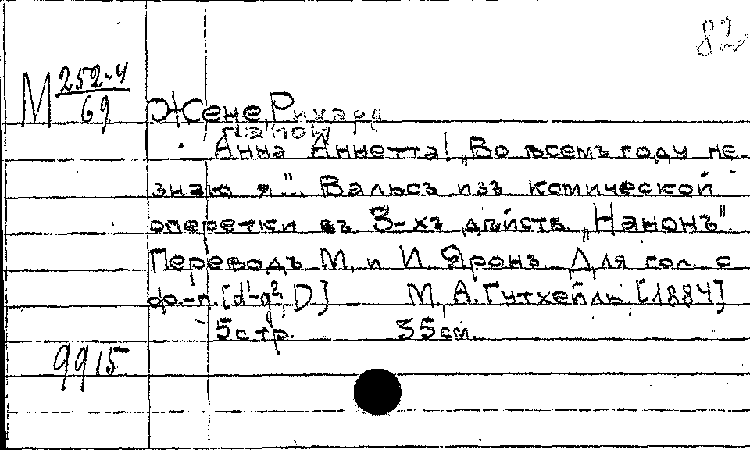 82
М 252-4/69
Жене, Рихард
Нанон
Анна Аннетта! „Во всемъ году не
знаю я"... Вальсъ изъ комической
оперетки въ 3-хъ дѣйств. „Нанонъ".
Переводъ М. и И. Яронъ. Для гол. с
ф.-п. [d¹-g²; D] М., А. Гутхейль [1884]
5 стр. 35 см.
9915